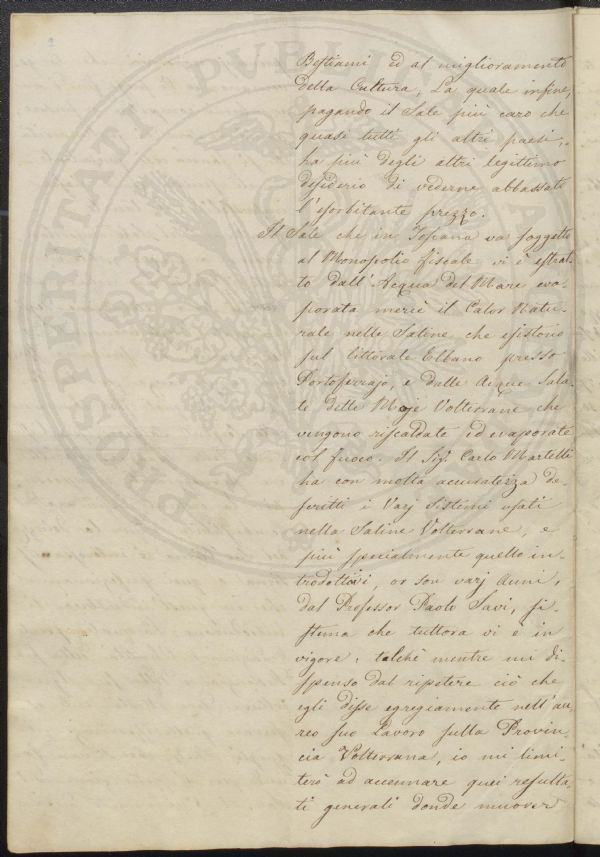 Bestiami ed al miglioramento
della Cultura, La quale infine,
pagando il Sale più caro che
quasi tutti gli altri paesi,
ha più degli altri legittimo
desiderio di vederne abbassato
l'esorbitante prezzo.
Il Sale che in Toscana va soggetto
al Monopolio fiscale vi è estrat-
to dall'Acqua del Mare eva-
porata mercè il Calor Natu-
rale nelle Saline che esistono
sul littorale Elbano presso
Portoferrajo, e dalle Acque Sala-
te delle Moje Volterrane che
vengono riscaldate ed evaporate
col fuoco. Il Sig. Carlo Martelli
ha con molta accuratezza de-
scritti i Varj Sistemi usati
nella Saline Volterrane, e
più specialmente quello in-
trodottovi, or son varj Anni,
dal Professor Paolo Savi, si-
stema che tuttora vi è in
vigore: talchè mentre mi di-
spenso dal ripetere ciò che
egli disse egregiamente nell'au-
reo suo Lavoro sulla Provin-
cia Volterrana, io mi limi-
terò ad accennare quei resulta-
ti generali donde muover
PROSPERITATI PUBLI